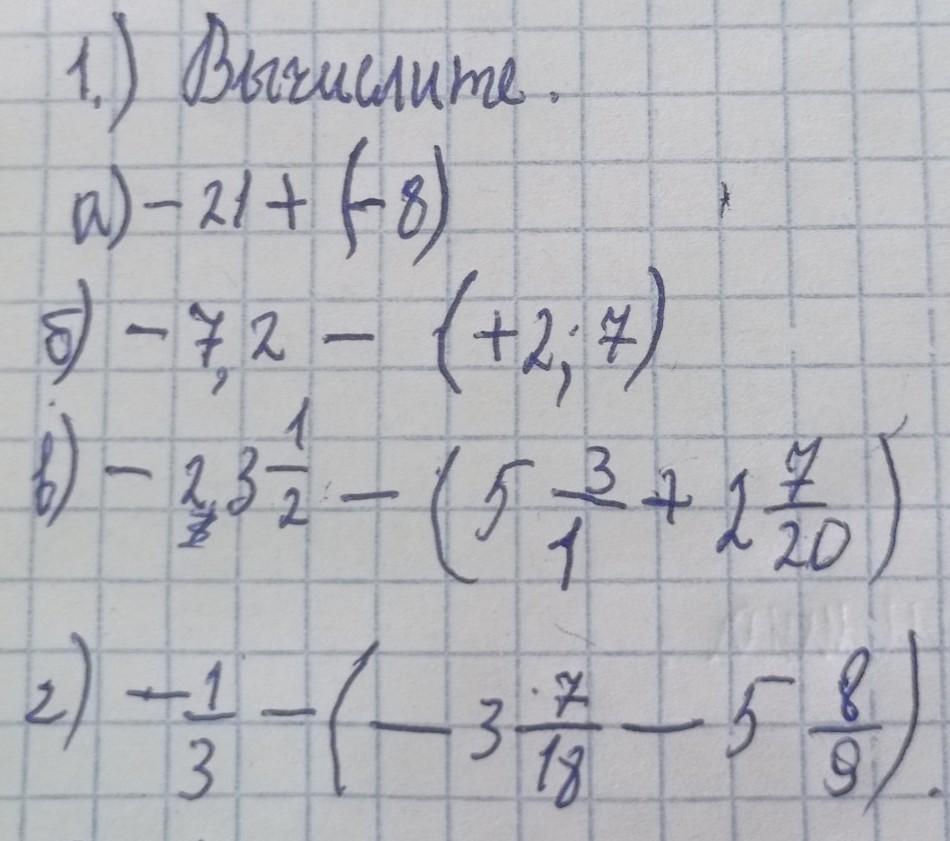 1.) Вычислите.
а) - 21 + (- 8)
б) - 7,2 - (+2,7)
в) - 23 1/2 - (5 3/1 + 2 7/20)
г) - 1/3 - (- 3 7/18 - 5 8/9).